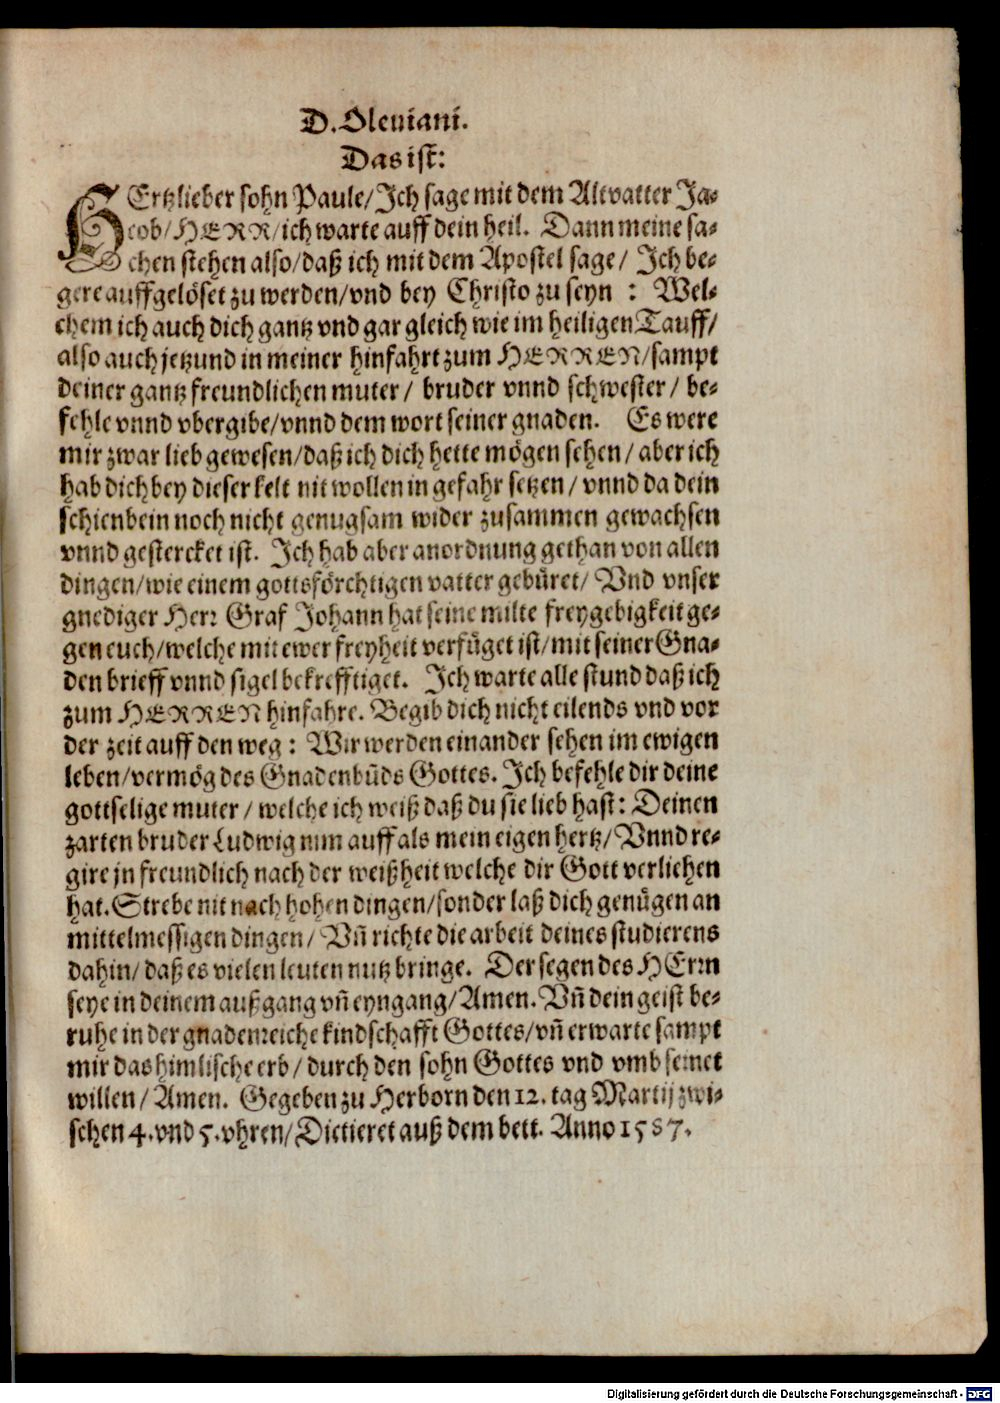 D. Oleviani.
Das ist:
HErtzlieber sohn Paule/ Ich sage mit dem Altvatter Ja-
cob/ HERR/ ich warte auff dein heil. Dann meine sa-
chen stehen also/ daß ich mit dem Apostel sage/ Ich be-
gere auffgelöset zu werden/ vnd bey Christo zu seyn : Wel-
chem ich auch dich gantz vnd gar gleich wie im heiligen Tauff/
also auch jetzund in meiner hinfahrt zum HERREN/ sampt
deiner gantz freundlichen muter/ bruder vnnd schwester/ be-
fehle vnnd vbergibe/ vnnd dem wort seiner gnaden. Es were
mir zwar lieb gewesen/ daß ich dich hette mögen sehen/ aber ich
hab dich bey dieser kelt nit wollen in gefahr setzen/ vnnd da dein
schienbein noch nicht genugsam wider zusammen gewachsen
vnnd gestercket ist. Ich hab aber anordnung gethan von allen
dingen/ wie einem gottsförchtigen vatter gebüret/ Vnd vnser
gnediger Herr Graf Johann hat seine milte freygebigkeit ge-
gen euch/ welche mit ewer freyheit verfüget ist/ mit seiner Gna-
den brieff vnnd sigel bekrefftiget. Ich warte alle stund daß ich
zum HERREN hinfahre. Begib dich nicht eilends vnd vor
der zeit auff den weg : Wir werden einander sehen im ewigen
leben/ vermög des Gnadenbūds Gottes. Ich befehle dir deine
gottselige muter/ welche ich weiß daß du sie lieb hast: Deinen
zarten bruder Ludwig nim auff als mein eigen hertz/ Vnnd re-
gire jn freundlich nach der weißheit welche dir Gott verliehen
hat. Strebe nit nach hohen dingen/ sonder laß dich genügen an
mittelmessigen dingen/ Vñ richte die arbeit deines studierens
dahin/ daß es vielen leuten nutz bringe. Der segen des HErrn
seye in deinem außgang vñ eyngang/ Amen. Vñ dein geist be-
ruhe in der gnadenreiche kindschafft Gottes/ vñ erwarte sampt
mir das himlische erb/ durch den sohn Gottes vnd vmb seinet
willen/ Amen. Gegeben zu Herborn den 12. tag Martij zwi-
schen 4. vnd 5. vhren/ Dictieret auß dem bett. Anno 1587.
Digitalisierung gefördert durch die Deutsche Forschungsgemeinschaft - DFG